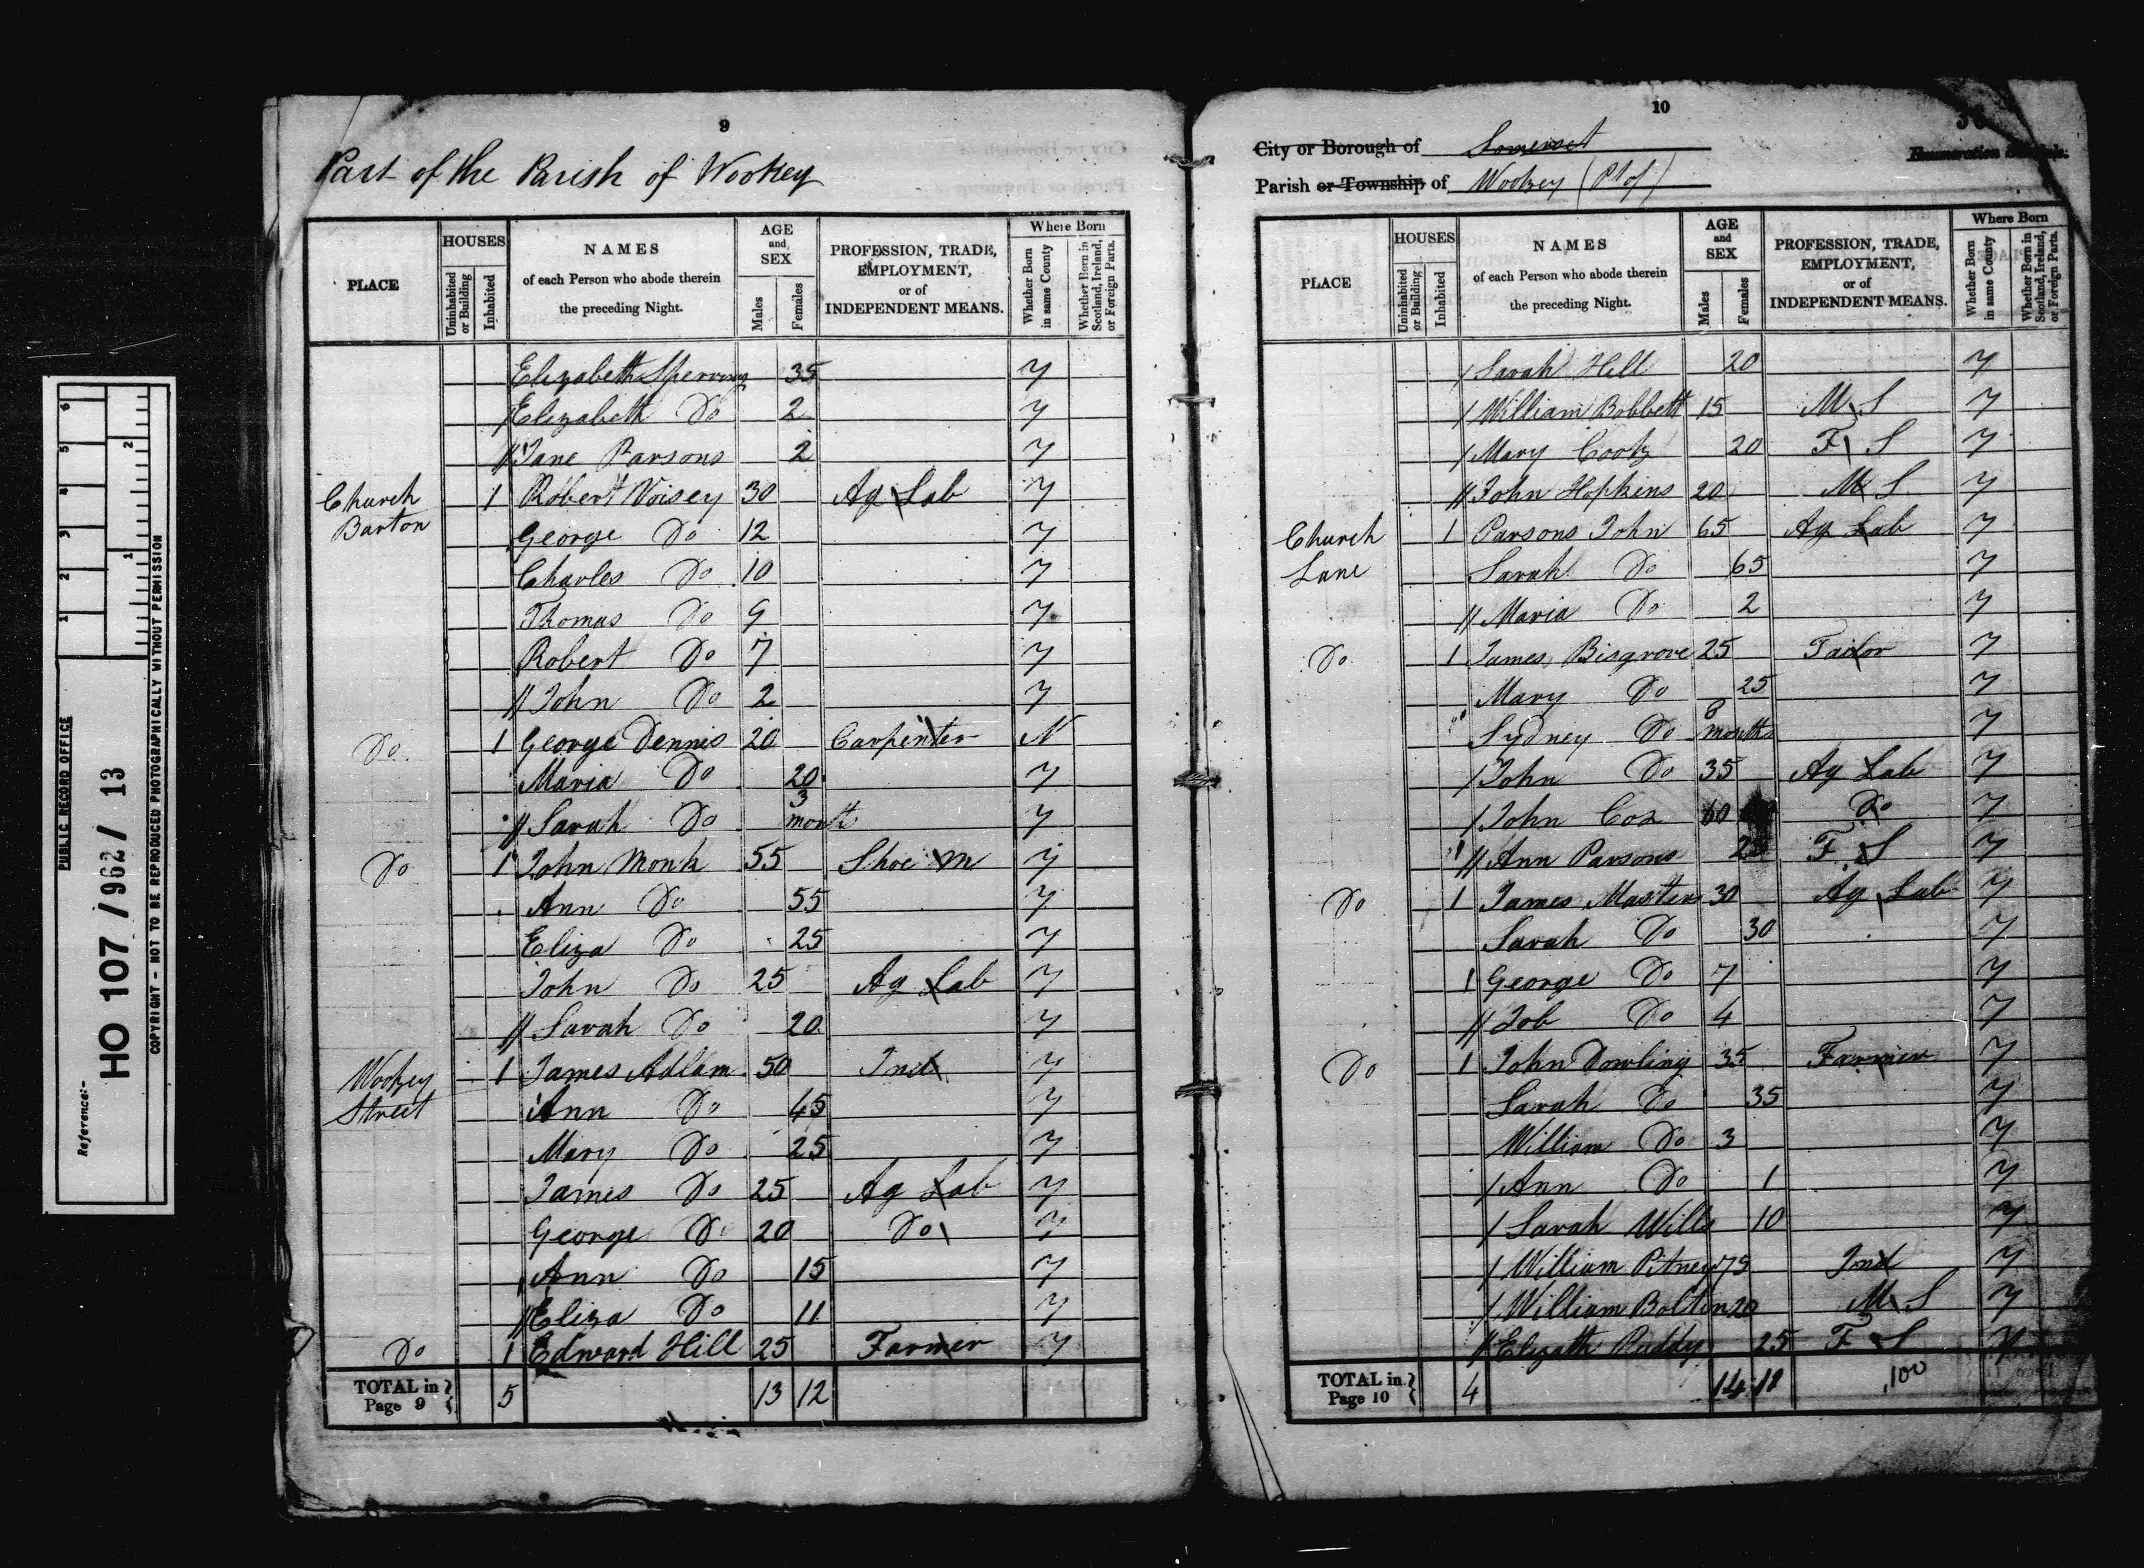 9
Part of the Parish of Wookey
PLACE
HOUSES
Uninhabited or Building
Inhabited
NAMES
of each Person who abode therein
the preceding Night.
AGE
and
SEX
Males
Females
PROFESSION, TRADE,
EMPLOYMENT,
or of
INDEPENDENT MEANS.
Where Born
Whether Born in same County
Whether Born in Scotland, Ireland, or Foreign Parts.
Elizabeth Sperring 35 Y
/ Elizabeth Do 2 Y
// Jane Parsons 2 Y
Church Barton 1 Robert Voisey 30 Ag Lab Y
George Do 12 Y
Charles Do 10 Y
Thomas Do 9 Y
Robert Do 7 Y
// John Do 2 Y
Do 1 George Dennis 20 Carpenter N
Maria Do 20 Y
// Sarah Do 3 month Y
Do 1 John Monk 55 Shoe M Y
Ann Do 55 Y
Eliza Do 25 Y
John Do 25 Ag Lab Y
// Sarah Do 20 Y
Wookey Street 1 James Adlam 50 Ind Y
Ann Do 45 Y
Mary Do 25 Y
James Do 25 Ag Lab Y
George Do 20 Do Y
/ Ann Do 15 Y
// Eliza Do 11 Y
Do 1 Edward Hill 25 Farmer Y
TOTAL in Page 9 } 5 13 12
10
City or Borough of Somerset
Parish or Township of Wookey (Pt of)
Enumeration
PLACE
HOUSES
Uninhabited or Building
Inhabited
NAMES
of each Person who abode therein
the preceding Night.
AGE
and
SEX
Males
Females
PROFESSION, TRADE,
EMPLOYMENT,
or of
INDEPENDENT MEANS.
Where Born
Whether Born in same County
Whether Born in Scotland, Ireland, or Foreign Parts.
/ Sarah Hill 20 Y
/ William Bobbett 15 M S Y
/ Mary Cook 20 F S Y
// John Hopkins 20 M S Y
Church Lane 1 Parsons John 65 Ag Lab Y
Sarah Do 65 Y
// Maria Do 2 Y
Do 1 James Bisgrove 25 Tailor Y
Mary Do 25 Y
Sydney Do 8 months Y
/ John Do 35 Ag Lab Y
/ John Cox 60 Do Y
// Ann Parsons F S Y
Do 1 James Masters 30 Ag Lab Y
Sarah Do 30 Y
/ George Do 7 Y
// Job Do 4 Y
Do 1 John Dowling 35 Farmer Y
Sarah Do 35 Y
William Do 3 Y
/ Ann Do 1 Y
/ Sarah Wills 10 Y
/ William Pitney 75 Ind Y
/ William Bolton 20 M S Y
// Elizath Puddy 25 F S Y
TOTAL in Page 10 } 4 14 100
6
5
4
3
2
1
2
1
PUBLIC RECORD OFFICE
Reference:-
HO 107 / 962 / 13
COPYRIGHT - NOT TO BE REPRODUCED PHOTOGRAPHICALLY WITHOUT PERMISSION